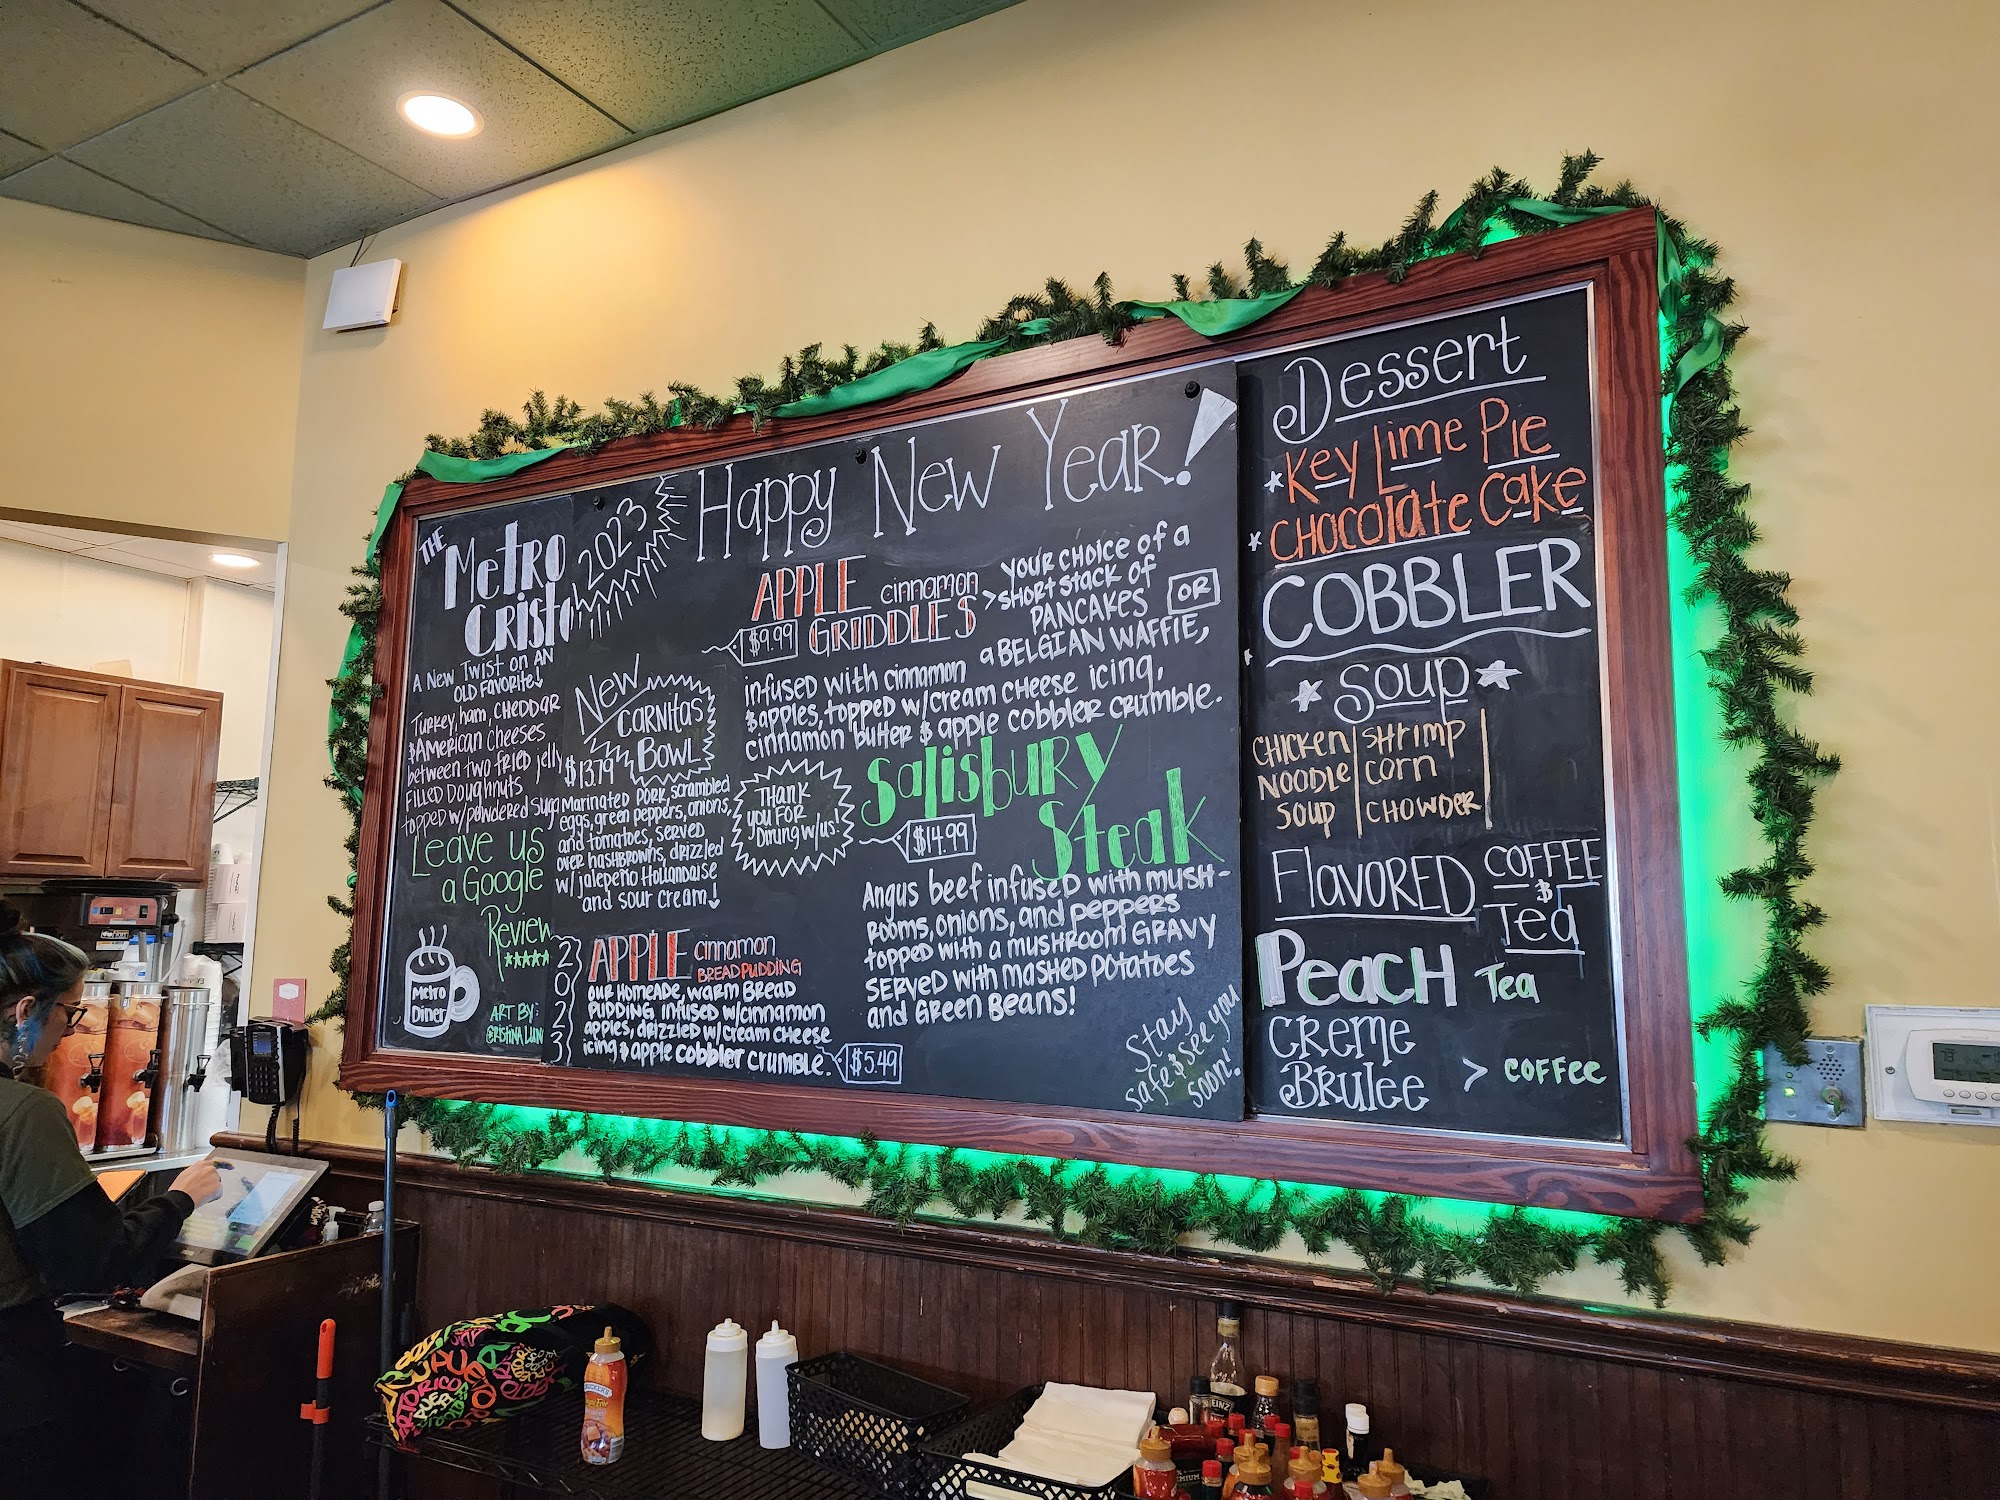 THE
Metro
Cristo
A New Twist on AN
OLD FAVORITE!
Turkey, ham, CHEDDAR
& AMERICAN CHEESES
between two fried jelly
FILLED DOUGHNUTS
topped w/powdered suga
Leave us
a Google
Review
★★★★★
Metro
Diner
ART BY:
CRISTINA LUN
2023
Happy New Year!
New
CARNITAS
BOWL
$13.79
MARINATED PORK, scrambled
eggs, green peppers, onions,
and tomatoes, SERVED
OVER HASHBROWNS, DRIZZLED
w/ jalepeño Hollandaise
and sour cream!
2023
APPLE cinnamon
BREAD PUDDING
OUR HOMEADE, WARM BREAD
PUDDING INFUSED W/CINNAMON
apples, DRIZZLED w/cream CHEESE
icing & apple cobbler crumble.
$5.49
APPLE cinnamon
GRIDDLES
$9.99
YOUR CHOICE of a
SHORT STACK OF
PANCAKES OR
a BELGIAN WAFFLE,
infused with cinnamon
& apples, topped w/cream CHEESE icing,
cinnamon butter & apple cobbler crumble.
THANK
YOU FOR
Dining w/us!
Salisbury
Steak
$14.99
Angus beef infused with MUSH-
ROOMS, onions, and peppers
topped with a MUSHROOM GRAVY
SERVED WITH MASHED POTATOES
and GREEN BEANS!
Stay
safe & see you
soon!
Dessert
KEY Lime Pie
CHOCOLATE Cake
COBBLER
Soup
CHICKEN
NOODLE
Soup
SHRIMP
CORN
CHOWDER
FLAVORED
COFFEE
&
Tea
PeacH Tea
CREME
BRULEE > COFFEE
HEINZ